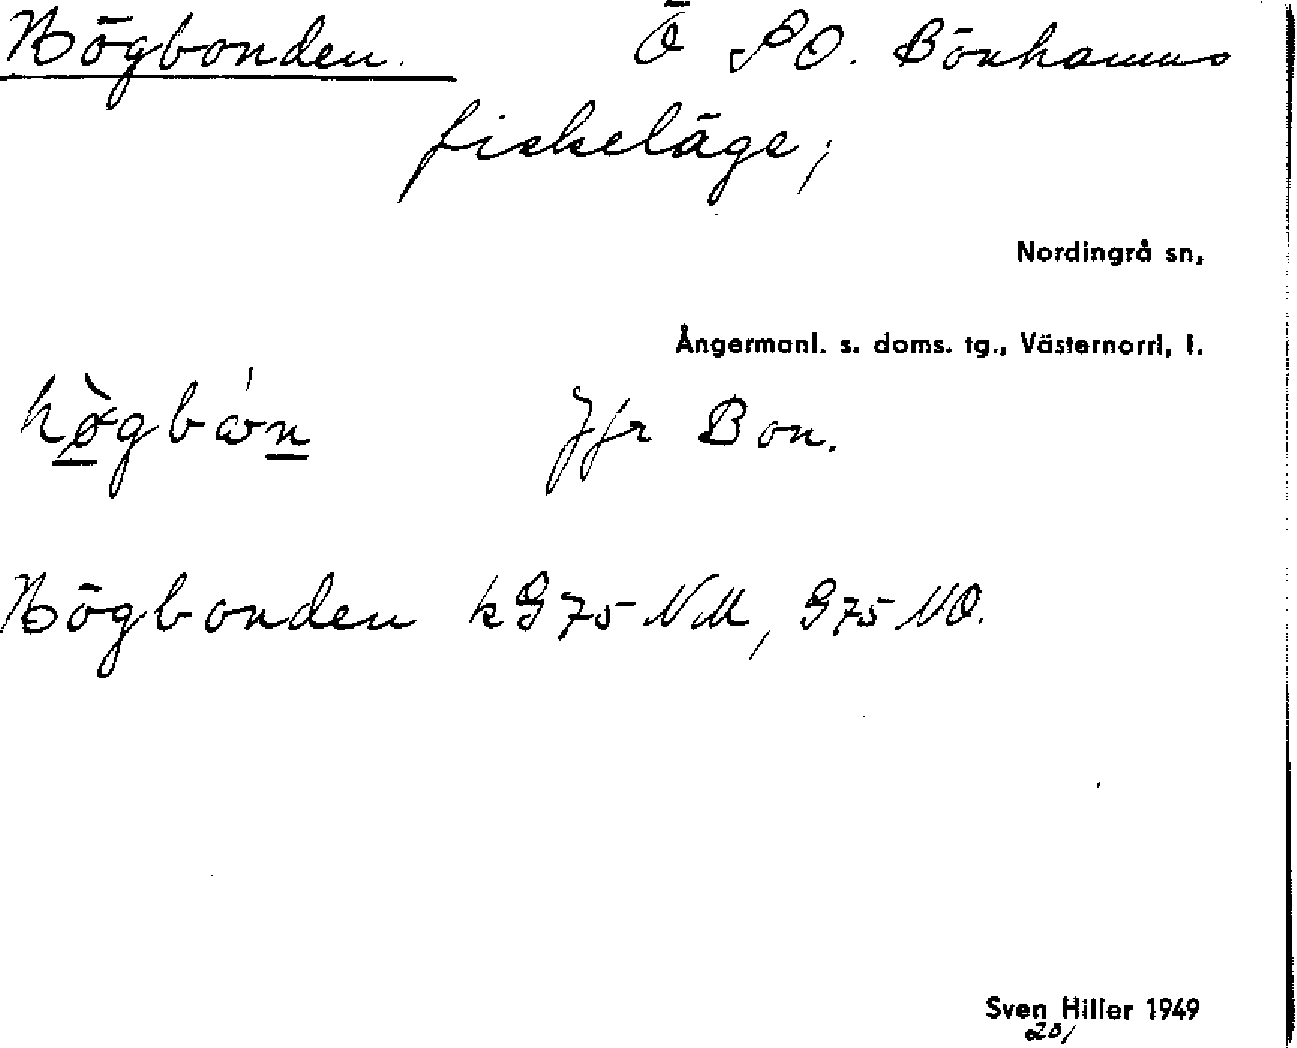 Högbonden. Ö SO. Bönhamns
fiskeläge,
Nordingrå sn,
Ångermanl. s. doms. tg., Västernorrl, l.
Jfr Bon.
Högbonden kG75 NM, G75 NO.
Sven Hiller 1949
20/